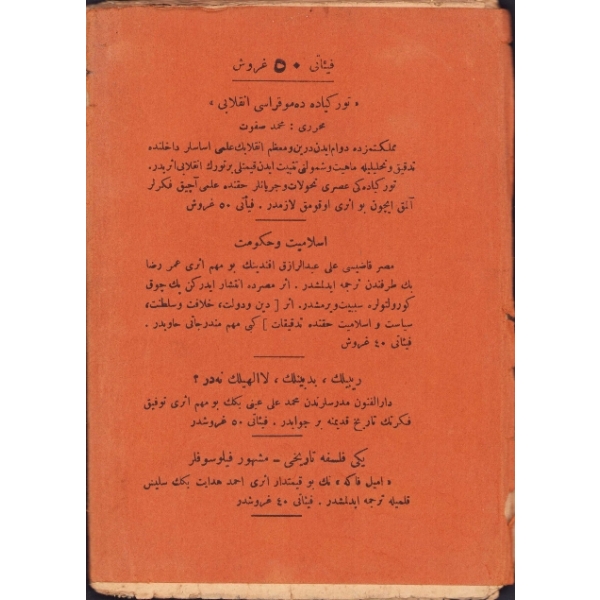 فیئاتی ۵۰ غروش
« تورکیاده ده‌موقراسی انقلابی »
محرری : محمد صفوت
مملکتمزده دوام ایدن درین و معظم انقلابك علمی اساسلر داخلنده
تدقیق و تحلیلیله ماهیت و شمولنی تثبیت ایدن قیمتلی بر تورك انقلابی اثریدر .
تورکیاده‌کی عصری تحولات و جریانلر حقنده علمی آچیق فکرلر
آلمق ایچون بو اثری اوقومق لازمدر . فیئاتی ۵۰ غروش
اسلامیت و حکومت
مصر قاضیسی علی عبدالرازق افندینك بو مهم اثری عمر رضا
بك طرفندن ترجمه ایدلمشدر . اثر مصرده انتشار ایدرکن پك چوق
کورولتولره سببیت ویرمشدر . اثر [ دین و دولت ، خلافت و سلطنت ،
سیاست و اسلامیت حقنده تدقیقات ] کبی مهم مندرجاتی حاویدر .
فیئاتی ٤٠ غروش
ریبیلك ، بدبینلك ، لاالهیلك نه‌در ؟
دارالفنون مدرسلرندن محمد علی عینی بکك بو مهم اثری توفیق
فکرتك تاریخ قدیمنه بر جوابدر . فیئاتی ۵۰ غروشدر
یکی فلسفه تاریخی - مشهور فیلوسوفلر
« امیل فاکه » نك بو قیمتدار اثری احمد هدایت بکك سلیس
قلمیله ترجمه ایدلمشدر . فیئاتی ٤٠ غروشدر